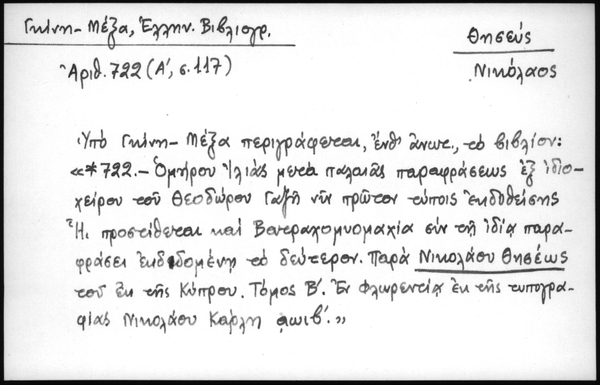 Γκίνη - Μέξα, Ἑλλην. Βιβλιογρ.
Θησεύς
Νικόλαος
Ἀριθ. 722 (Α΄, σ. 117)
Ὑπό Γκίνη - Μέξα περιγράφεται, ἔνθ' ἄνωτ., τό βιβλίον:
«*722. - Ὁμήρου Ἰλιάς μετά παλαιᾶς παραφράσεως ἐξ ἰδιο-
χείρου τοῦ Θεοδώρου Γαζῆ νῦν πρῶτον τύποις ἐκδοθείσης
ᾟ προστίθεται καί Βατραχομυομαχία σύν τῇ ἰδίᾳ παρα-
φράσει ἐκδιδομένη τό δεύτερον. Παρά Νικολάου Θησέως
τοῦ ἐκ τῆς Κύπρου. Τόμος Β΄. Ἐν Φλωρεντίᾳ ἐκ τῆς τυπογρα-
φίας Νικολάου Κάρλη ͵αωιβ΄.»